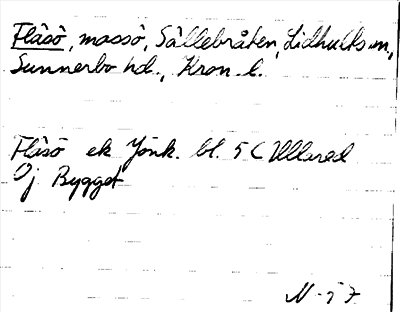 Flåsö, mossö, Sällebråten, Lidhults sn,
Sunnerbo hd., Kron. l.
Flåsö ek Jönk. bl. 5 C Ullared
Ej Bygget